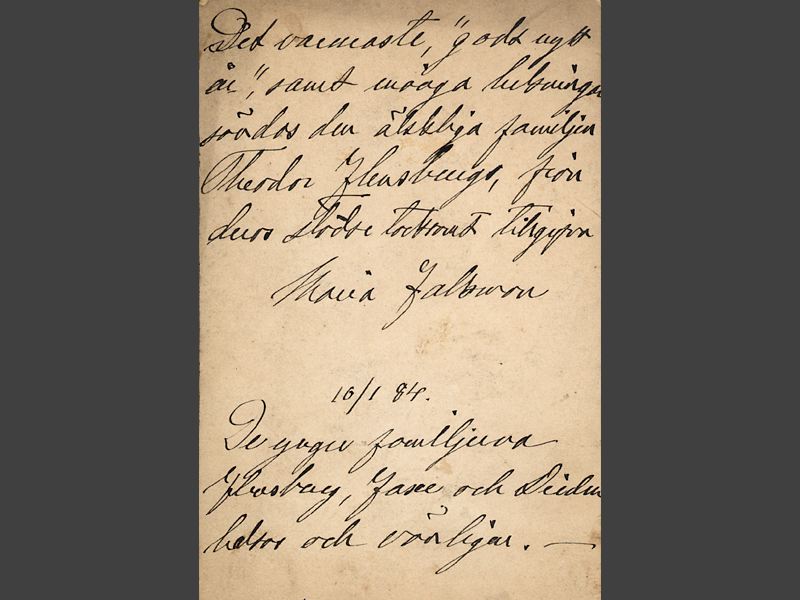 Det varmaste, "godt nytt
år", samt många helsningar
sändas den älskliga familjen
Theodor Flensburgs, från
deras städse tacksamt tillgifna
Maria Falkman
10/1 84.
De yngre familjerna
Flensburg, Faxe och
helsas och vänligen. —